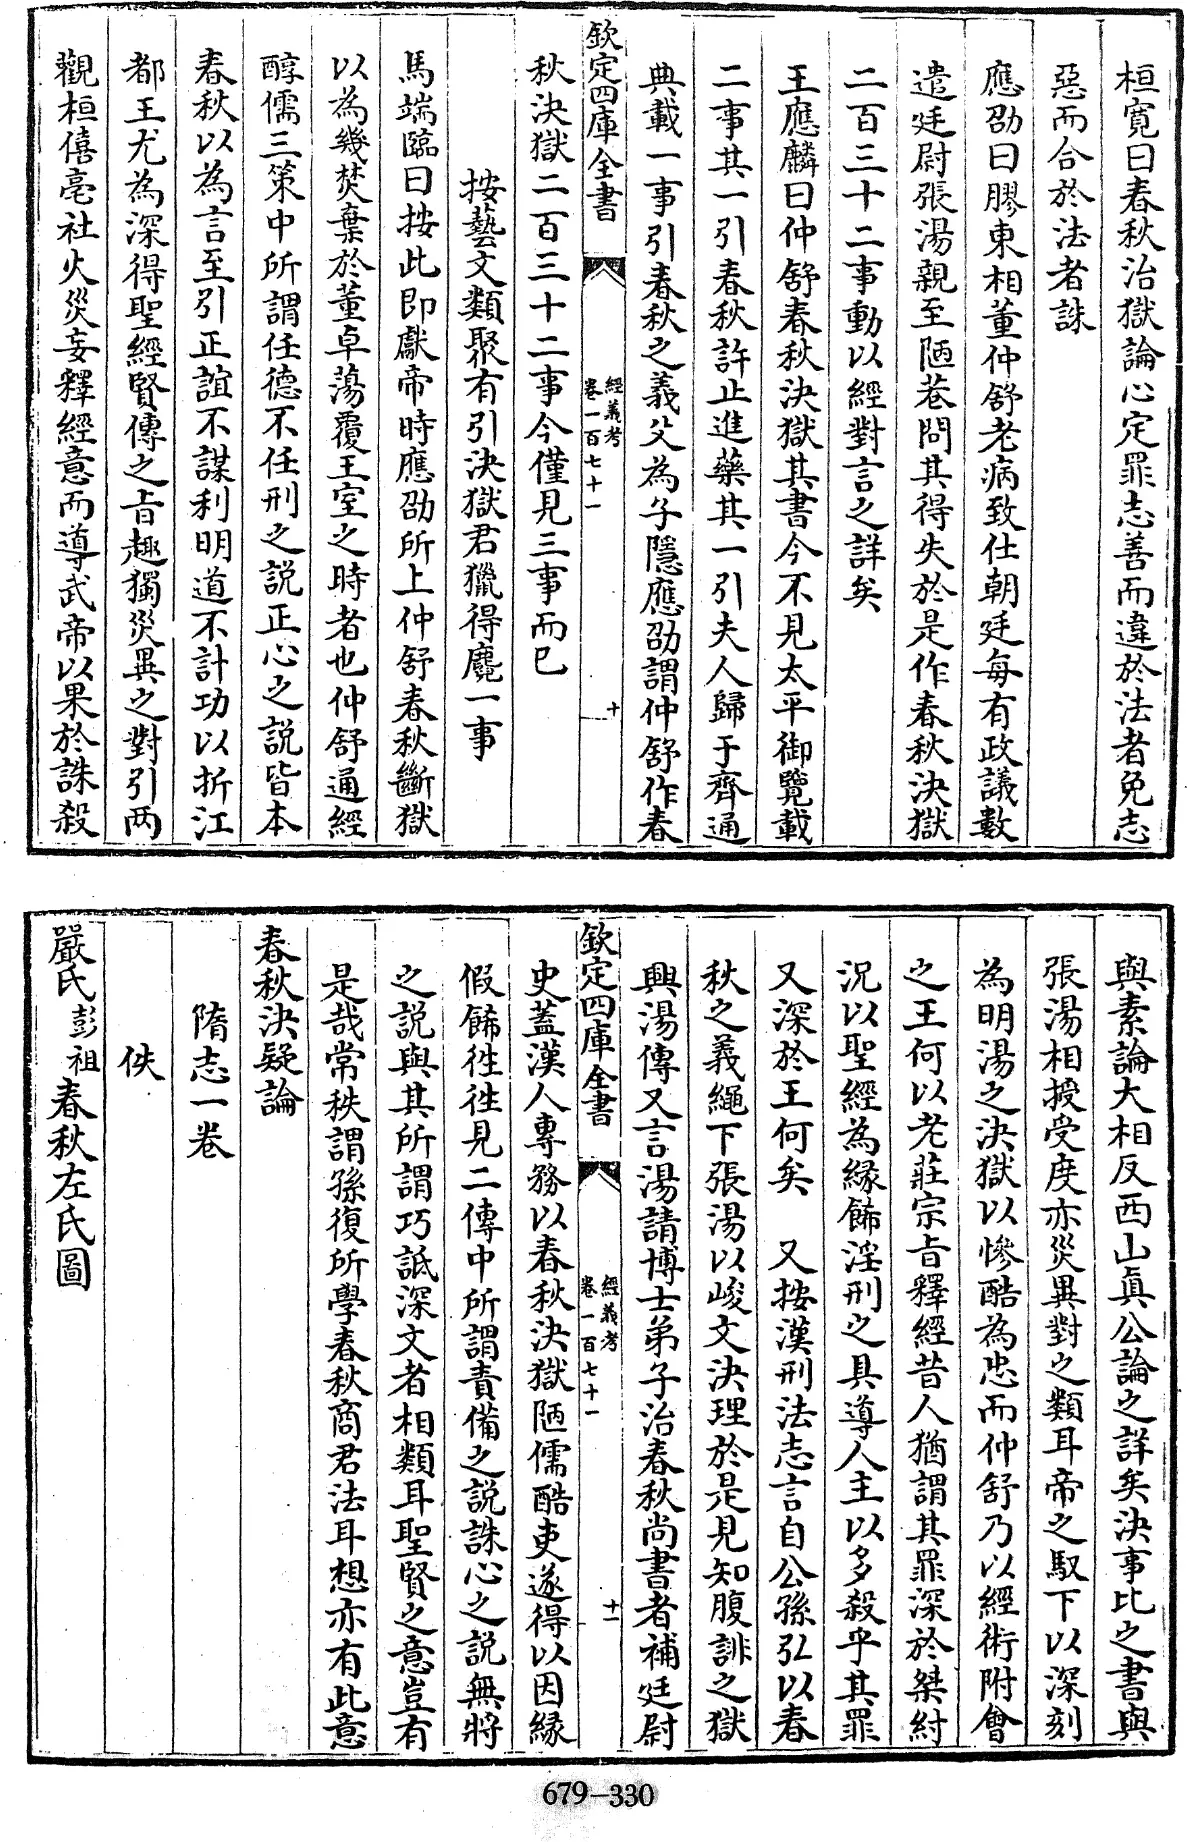 桓寛曰春秋治獄論心定罪志善而違於法者免志
惡而合於法者誅
應劭曰膠東相董仲舒老病致仕朝廷每有政議數
遣廷尉張湯親至陋巷問其得失於是作春秋決獄
二百三十二事動以經對言之詳矣
王應麟曰仲舒春秋決獄其書今不見太平御覽載
二事其一引春秋許止進藥其一引夫人歸于齊通
典載一事引春秋之義父為子隱應劭謂仲舒作春
欽定四庫全書
經義考
卷一百七十一
十
秋決獄二百三十二事今僅見三事而已
按藝文類聚有引決獄君獵得麑一事
馬端臨曰按此即獻帝時應劭所上仲舒春秋斷獄
以為幾焚棄於董卓蕩覆王室之時者也仲舒通經
醇儒三策中所謂任德不任刑之說正心之說皆本
春秋以為言至引正誼不謀利明道不計功以折江
都王尤為深得聖經賢傳之㫖趣獨災異之對引两
觀桓僖亳社火災妄釋經意而導武帝以果於誅殺
與素論大相反西山真公論之詳矣決事比之書與
張湯相授受度亦災異對之類耳帝之馭下以深刻
為明湯之決獄以慘酷為忠而仲舒乃以經術附會
之王何以老莊宗㫖釋經昔人猶謂其罪深於桀紂
況以聖經為緣飾淫刑之具導人主以多殺乎其罪
又深於王何矣　又按漢刑法志言自公孫弘以春
秋之義繩下張湯以峻文決理於是見知腹誹之獄
興湯傳又言湯請博士弟子治春秋尚書者補廷尉
欽定四庫全書
經義考
卷一百七十一
十一
史蓋漢人專務以春秋決獄陋儒酷吏遂得以因緣
假飾徃徃見二傳中所謂責備之說誅心之說無將
之說與其所謂巧詆深文者相類耳聖賢之意豈有
是哉常秩謂孫復所學春秋商君法耳想亦有此意
春秋決疑論
隋志一卷
佚
嚴氏彭祖春秋左氏圖
679-330